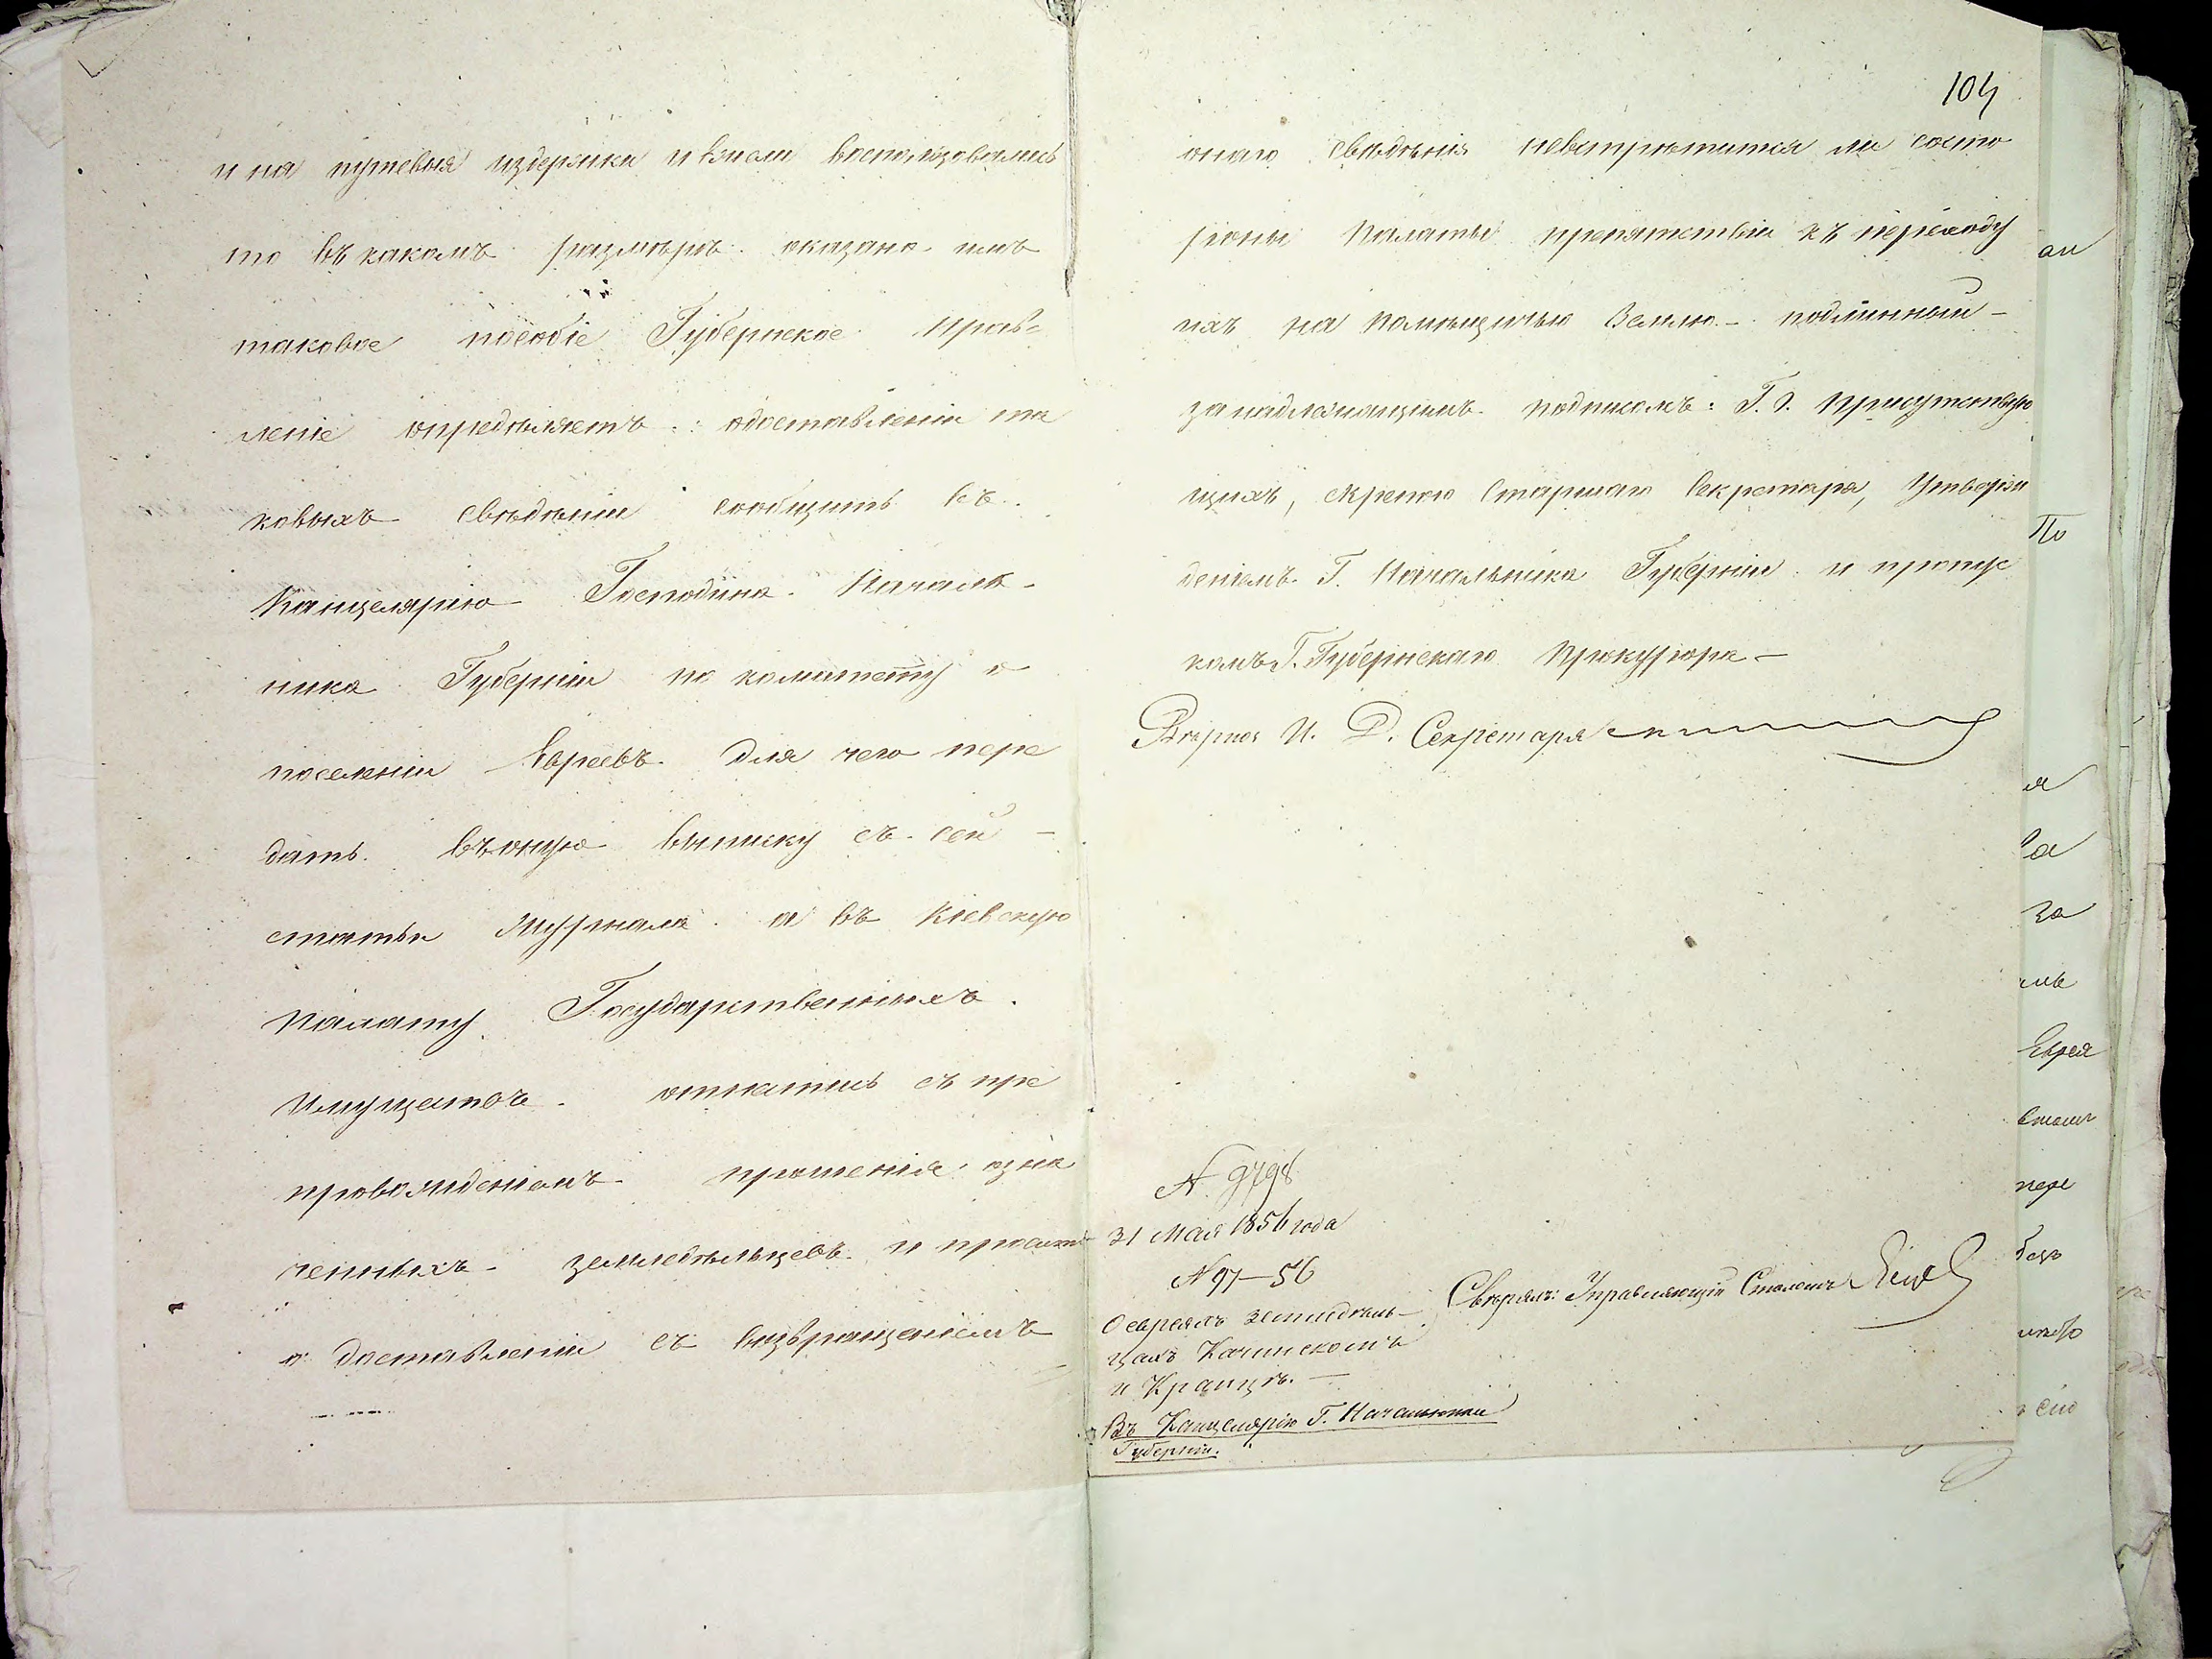 и на путевыя издержки и если воспользовались
то въ какомъ размѣрѣ оказано имъ
таковое пособіе Губернское Прав=
леніе опредѣляетъ: о доставленіи та
ковыхъ свѣдѣніи сообщить въ
Канцелярію Господина Началь-
ника Губерніи по комитету о
поселеніи Евреевъ для чего пере
дать въ оную выписку съ сей -
статьи Журнала а въ Кіевскую
Палату Государственныхъ
Имуществъ отнятись съ пре
провожденіемъ прошенія озна
ченныхъ земледѣльцевъ и просить
о доставленіи съ возвращеніемъ
104
онаго свѣдѣнія невстрѣтится ли состо
роны Палаты препятствіи къ переходу
ихъ на помѣщичью Землю.- подлинный -
за надлежащимъ подписомъ: Г. Г. Присутствую
щихъ, скрепою Старшаго Секретаря, Утверж
деніемъ Г. Начальника Губерніи и пропус
комъ Г. Губернскаго Прокурора -
Вѣрно: И. Д. Секретаря
N. 9798
31 Мая 1856 года
N 97-56
О евреяхъ земледѣль-
цахъ Качинскомъ
и Кранцѣ. -
Свѣрялъ: Управляющій Столомъ
Въ Канцелярію Г. Начальника
Губерніи.
ои
По
я
за
Еврея
пере
бецъ